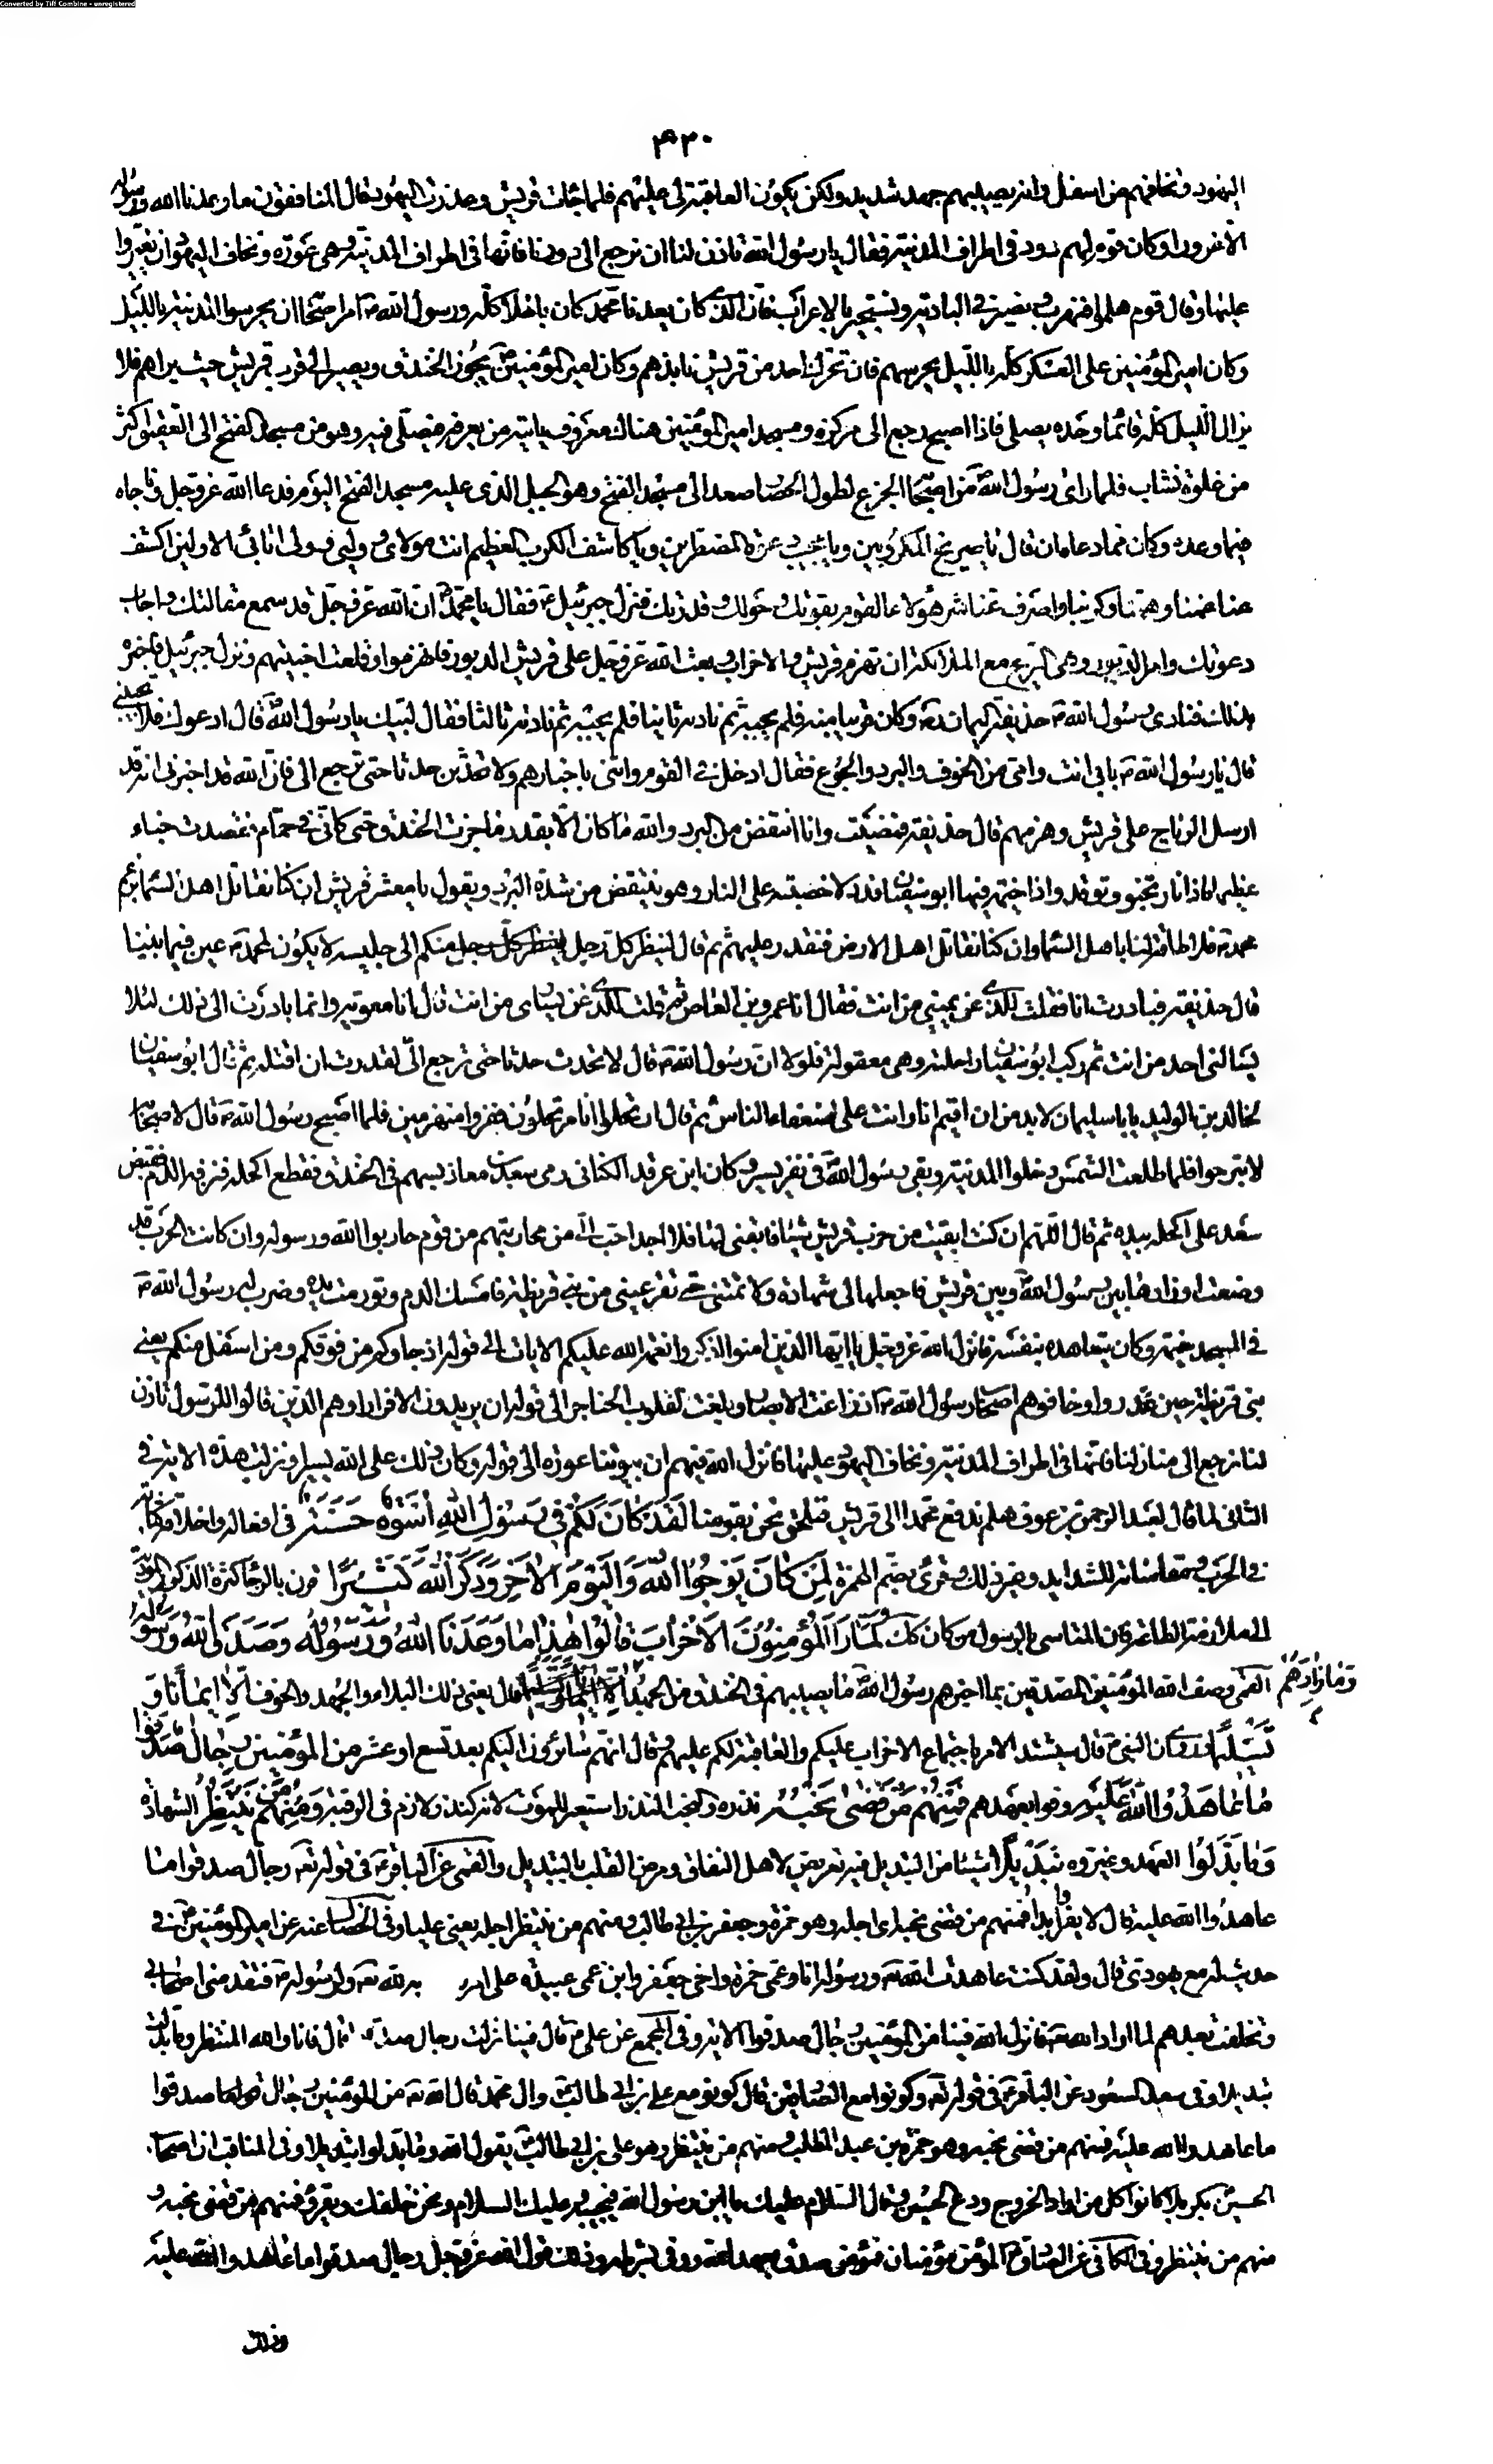 Converted by Tiff Combine - unregistered
٤٣٠
اليهود ونخافهم من اسفل وانه يصيبهم جهد شديد ولكن يكون العاقبة لى عليهم فلما جائت قريش وغدرت اليهود قال المنافقون ما وعدنا الله ورسوله
الا غرورا وكان قوم لهم دور فى اطراف المدينة فقال يا رسول الله تاذن لنا ان نرجع الى دورنا فانها فى اطراف المدينة وهى عورة ونخاف اليهود ان يغيروا
عليها وقال قوم هلموا فنهرب ونصير فى البادية ونستجير بالاعراب فان الذى كان يعدنا محمد كان باطلا كله ورسول الله ص امر اصحابه ان يحرسوا المدينة بالليل
وكان امير المؤمنين على العسكر كله بالليل يحرسهم فان تحرك احد من قريش نابذهم وكان امير المؤمنين يجوز الخندق ويصير الى قرب قريش حيث يراهم فلا
يزال الليل كله قائما وحده يصلى فاذا اصبح رجع الى مركزه ومسجد امير المؤمنين هناك معروف ياتيه من يعرفه فيصلى فيه وهو من مسجد الفتح الى العقيق اكثر
من غلوة نشاب فلما راى رسول الله ص من اصحابه الجزع لطول الحصار صعد الى مسجد الفتح وهو الجبل الذى عليه مسجد الفتح اليوم فدعا الله عز وجل وناجاه
فيما وعده وكان مما دعا ان قال يا صريخ المكروبين ويا مجيب دعوة المضطرين ويا كاشف الكرب العظيم انت مولاى وليى وولى ابائى الاولين اكشف
عنا غمنا وهمنا وكربنا واصرف عنا شر هؤلاء القوم بقوتك وحولك وقدرتك فنزل جبرئيل ع فقال يا محمد ان الله عز وجل قد سمع مقالتك واجاب
دعوتك وامر الدبور وهى الريح مع الملائكة ان تهزم قريش والاحزاب وبعث الله عز وجل على قريش الدبور فانهزموا وقلعت اخبيتهم ونزل جبرئيل فاخبره
بذلك فنادى رسول الله ص حذيفة اليمان ره وكان قريبا منه فلم يجبه ثم ناديه ثانيا فلم يجبه ثم ناديه ثالثا فقال لبيك يا رسول الله قال ادعوك فلا تجيبنى
قال يا رسول الله ص بابى انت وامى من الخوف والبرد والجوع فقال ادخل فى القوم وائتنى باخبارهم ولا تحدثن حدثا حتى ترجع الى فان الله قد اخبرنى انه قد
ارسل الرياح على قريش وهزمهم قال حذيفة فمضيت وانا انتفض من البرد والله ما كان الا بقدر ما جزت الخندق حتى كانى فى حمام فقصدت خباء
عظيما فاذا نار تخبو وتوقد واذا خيمة فيها ابو سفيان قد دلا خصيتيه على النار وهو ينتفض من شدة البرد ويقول يا معشر قريش ان كنا نقاتل اهل السماء بزعم
محمد ص فلا طاقة لنا باهل السماء وان كنا نقاتل اهل الارض فنقدر عليهم ثم قال لينظر كل رجل منكم الى جليسه لا يكون لمحمد ص عين فيما بيننا
قال حذيفة فبادرت انا فقلت للذى عن يمينى من انت فقال انا عمرو بن العاص ثم قلت للذى عن يسارى من انت قال انا معوية وانما بادرت الى ذلك لئلا
يسالنى احد من انت ثم ركب ابو سفيان راحلته وهى معقولة فلولا ان رسول الله ص قال لا تحدث حدثا حتى ترجع الى لقدرت ان اقتله ثم قال ابو سفيان
لخالد بن الوليد يا ابا سليمان لا بد من ان اقيم انا وانت على ضعفاء الناس ثم قال ارتحلوا انا مرتحلون ففروا منهزمين فلما اصبح رسول الله ص قال لاصحابه
لا تبرحوا فلما طلعت الشمس دخلوا المدينة وبقى رسول الله فى نفر يسير وكان ابن عرقد الكنانى رمى سعد بن معاذ بسهم فى الخندق فقطع اكحله فنزفه الدم فقبض
سعد على اكحله بيده ثم قال اللهم ان كنت ابقيت من حرب قريش شيئا فابقنى لها فلا احد احب الى من محاربتهم من قوم حاربوا الله ورسوله وان كانت الحرب قد
وضعت اوزارها بين رسول الله وبين قريش فاجعلها لى شهادة ولا تمتنى حتى تقر عينى من بنى قريظة فامسك الدم وتورمت يده وضرب له رسول الله ص
فى المسجد خيمة وكان يتعاهده بنفسه فانزل الله عز وجل يا ايها الذين امنوا اذكروا نعمة الله عليكم الايات الى قوله اذ جاؤكم من فوقكم ومن اسفل منكم يعنى
بنى قريظة حين غدروا وخافوهم اصحاب رسول الله ص اذ زاغت الابصار وبلغت القلوب الحناجر الى قوله ان يريدون الا فرارا وهم الذين قالوا للرسول تاذن
لنا نرجع الى منازلنا فانها فى اطراف المدينة ونخاف اليهود عليها فانزل الله فيهم ان بيوتنا عورة الى قوله وكان ذلك على الله يسيرا ونزلت هذه الاية فى
الثانى لما قال لعبد الرحمن بن عوف هلم ندفع محمدا الى قريش فنلحق نحن بقومنا لَقَدْ كَانَ لَكُمْ فِى رَسُولِ اللهِ اُسْوَةٌ حَسَنَةٌ فى افعاله واخلاقه كثباته
فى الحرب ومقاساته للشدايد وغير ذلك وقرئ بضم الهمزة لِمَنْ كَانَ يَرْجُوا اللهَ وَالْيَوْمَ الْاخِرَ وَذَكَرَ اللهَ كَثيرًا قرن بالرجاء كثرة الذكر المؤدية
الى ملازمة الطاعة فان المتاسى بالرسول من كان كك وَلَمَّا رَاَ الْمُؤْمِنُونَ الْاَحْزابَ قَالُوا هٰذَا مَا وَعَدَنَا اللهُ وَرَسُولُهُ وَصَدَقَ اللهُ وَرَسُولُهُ
وَمَا زَادَهُمْ القمى وصف الله المؤمنين المصدقين بما اخبرهم رسول الله ما يصيبهم فى الخندق من الجهد قال يعنى ذلك البلاء والجهد والخوف اِلَّا ايمَانًا وَ
تَسْليمًا روى ان النبى ص قال سيشتد الامر باجتماع الاحزاب عليكم والعاقبة لكم عليهم وقال انهم سائرون اليكم بعد تسع او عشر مِنَ الْمُؤْمِنينَ رِجَالٌ صَدَقُوا
مَا عَاهَدُوا اللهَ عَلَيْهِ وفوا بعهدهم فَمِنْهُمْ مَنْ قَضى نَحْبَهُ نذره والنحب النذر استعير للموت لانه كنذر لازم فى الرقبة وَمِنْهُمْ مَنْ يَنْتَظِرُ الشهادة
وَمَا بَدَّلُوا العهد وغيروه تَبْديلًا شيئا من التبديل فيه تعريض لاهل النفاق ومرض القلب بالتبديل والقمى عن الباقر ع فى قوله تع رجال صدقوا ما
عاهدوا الله عليه قال لا يفروا ابدا فمنهم من قضى نحبه اى اجله وهو حمزة وجعفر بن ابى طالب ومنهم من ينتظر اجله يعنى عليا وفى الخصال عنه عن امير المؤمنين فى
حديث له مع يهودى قال ولقد كنت عاهدت الله تع ورسوله انا وعمى حمزة واخى جعفر وابن عمى عبيدة على امر لله تع ولرسوله ص فتقدمنى اصحابى
وتخلفت بعدهم لما اراد الله تع فانزل الله فينا من المؤمنين رجال صدقوا الاية وفى المجمع عن على ع قال فينا نزلت رجال صدقوا قال فانا والله المنتظر وما بدلت
تبديلا وفى سعد السعود عن الباقر ع فى قوله تع وكونوا مع الصادقين قال كونوا مع على بن ابى طالب وال محمد قال الله تع من المؤمنين رجال صدقوا
ما عاهدوا الله عليه فمنهم من قضى نحبه وهو حمزة بن عبد المطلب ومنهم من ينتظر وهو على بن ابى طالب يقول الله وما بدلوا تبديلا وفى المناقب ان اصحاب
الحسين بكربلا كانوا كل من اراد الخروج ودع الحسين وقال السلام عليك يا ابن رسول الله فيجيبه وعليك السلام ونحن خلفك ويقرؤ فمنهم من قضى نحبه و
منهم من ينتظر وفى الكافى عن الصادق ع المؤمن مؤمنان فمؤمن صدق بعهد الله ووفى بشرطه وذلك قول الله عز وجل رجال صدقوا ما عاهدوا الله عليه
وذلك